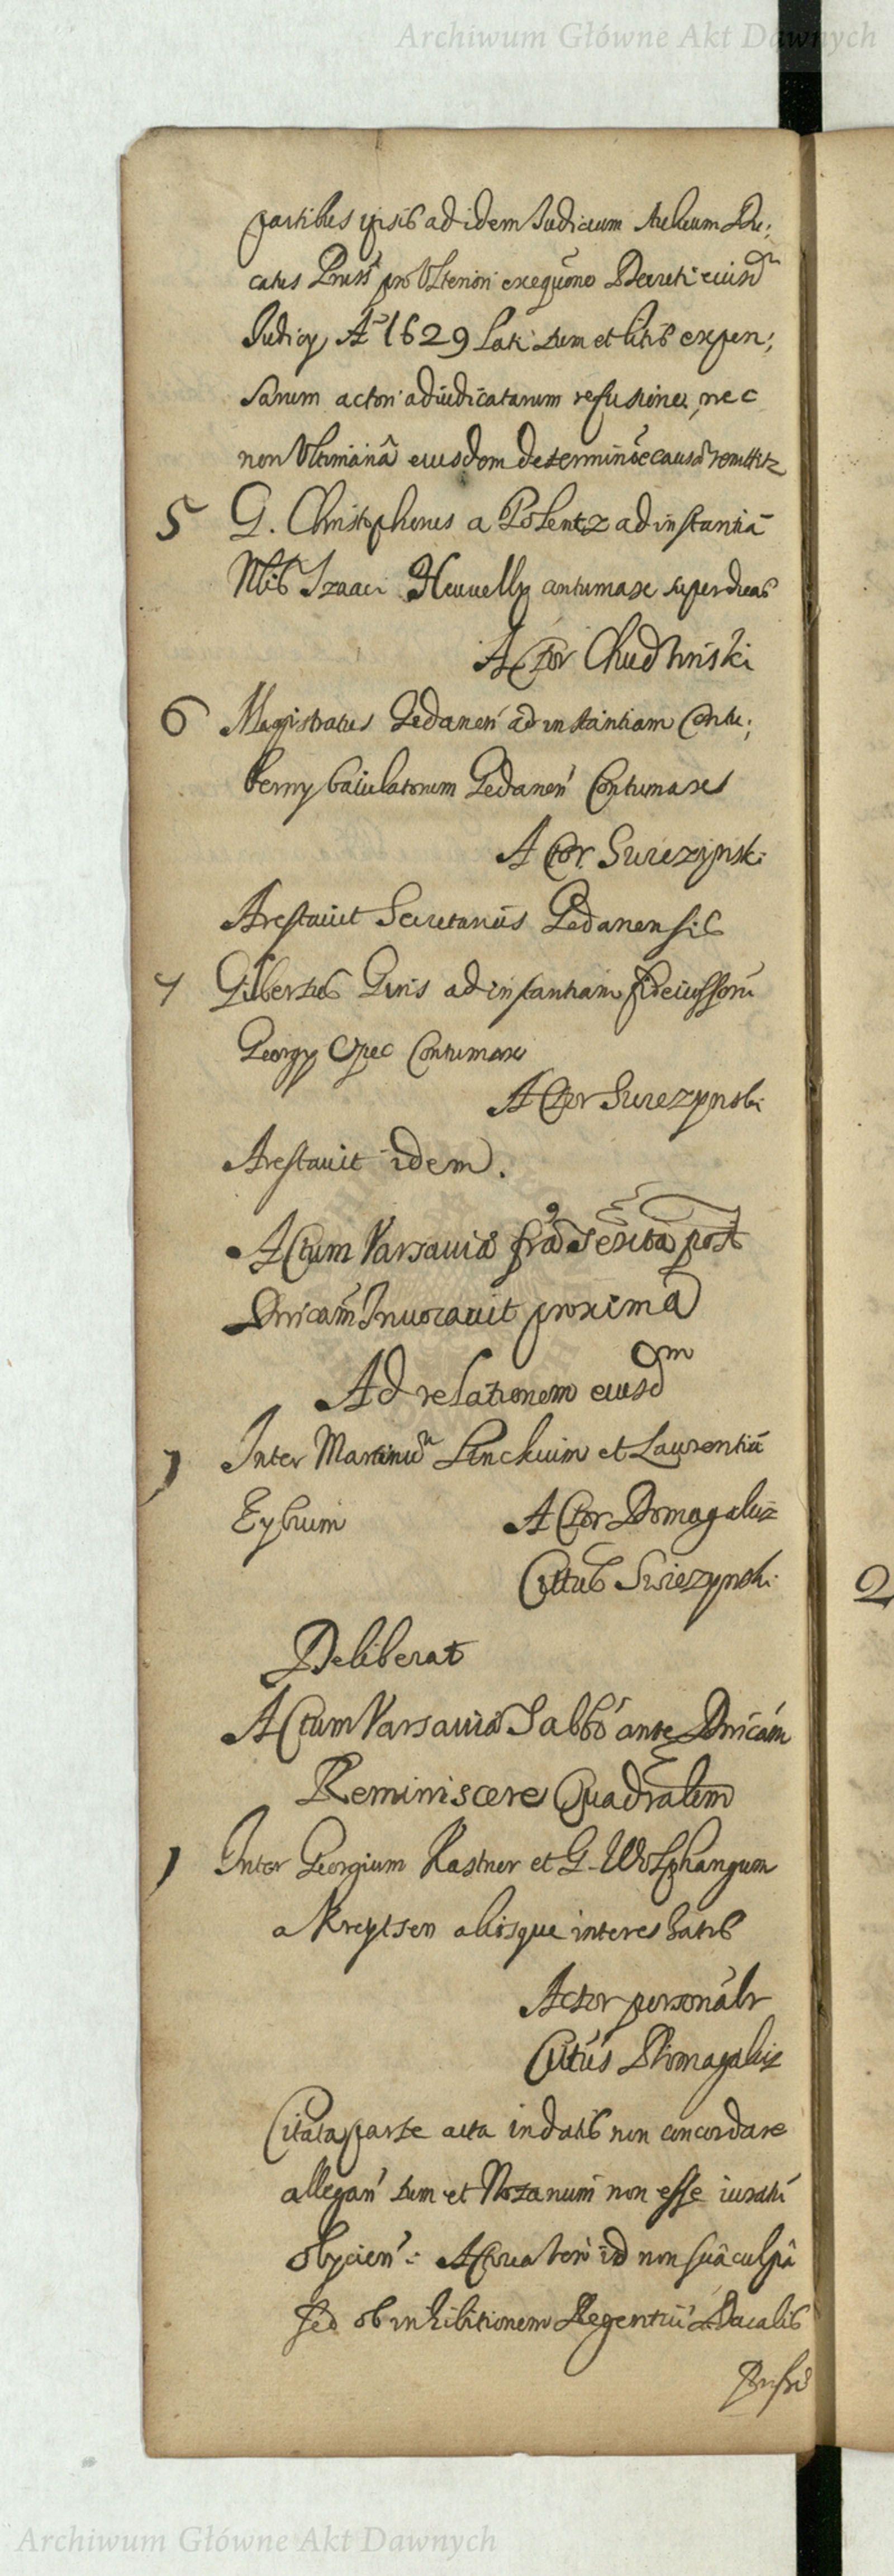 Archiwum Główne Akt Dawnych
partibus ipsis ad idem Judicium Aulicum Du;
catus Pruss pro Ulteriori exeqūone Decreti eiusdm
Judicy Ao 1629 Lati tum et litis expen;
sarum actori adiudicatarum refusione, nec
non Ultimariā eiusdem determinōe causā remittit
5 G. Christophorus a Polentz ad instantiā
Nblis Izaaci contumax super lucras
Actor Chudzinski
6 Magistratus Gedanen ad instantiam Contu;
berny baiulatorum Gedanen Contumaces
Actor Swiezynski
Arestavit Secretarius Gedanensis
7 Gilbertus Guris ad instantiam fideiussorū
Georgy Opec Contumax
Actor Swiezynski
Arestavit idem.
Actum Varsaviæ fra Sexta post
Dnicam Invocavit proxima
Ad relationem eiusdm
1 Inter Martinum Linckium et Laurentiū
Eybium Actor Domagalicz
Cittus Swiezynski
Deliberat
Actum Varsaviæ Sabbo ante Dnicam
Reminiscere Quadralem
1 Inter Georgium Kastner et G. Wolphangum
a Kreytsen aliosque interessatos
Actor personalr
Cittus Domagalicz
Citata parte acta in datis non concordare
allegan tum et Notarium non esse iuratū
obycien: Actorea vero id non suâ culpâ
sed ob inhibitionem Regentiū Ducalis
Prussiæ
2
Archiwum Główne Akt Dawnych